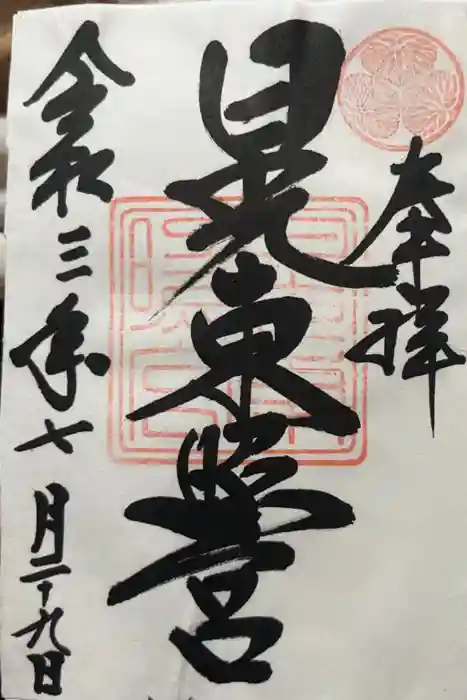 奉拝
日光東照宮
令和三年七月二十九日